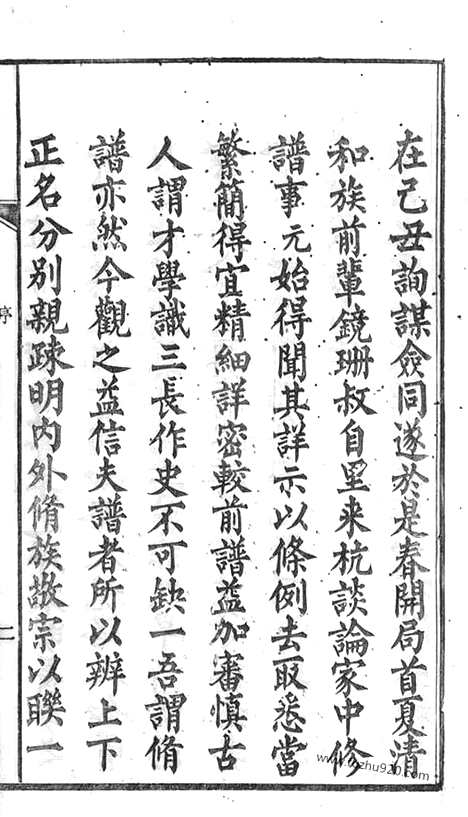 在己丑詢謀僉同遂於是春開局首夏清
和族前輩鏡珊叔自里来杭談論家中修
譜事元始得聞其詳示以條例去取悉當
繁簡得宜精細詳密較前譜益加審慎古
人謂才學識三長作史不可缺一吾謂脩
譜亦然今觀之益信夫譜者所以辨上下
正名分别親疎明内外脩族敬宗以聯一
序
二